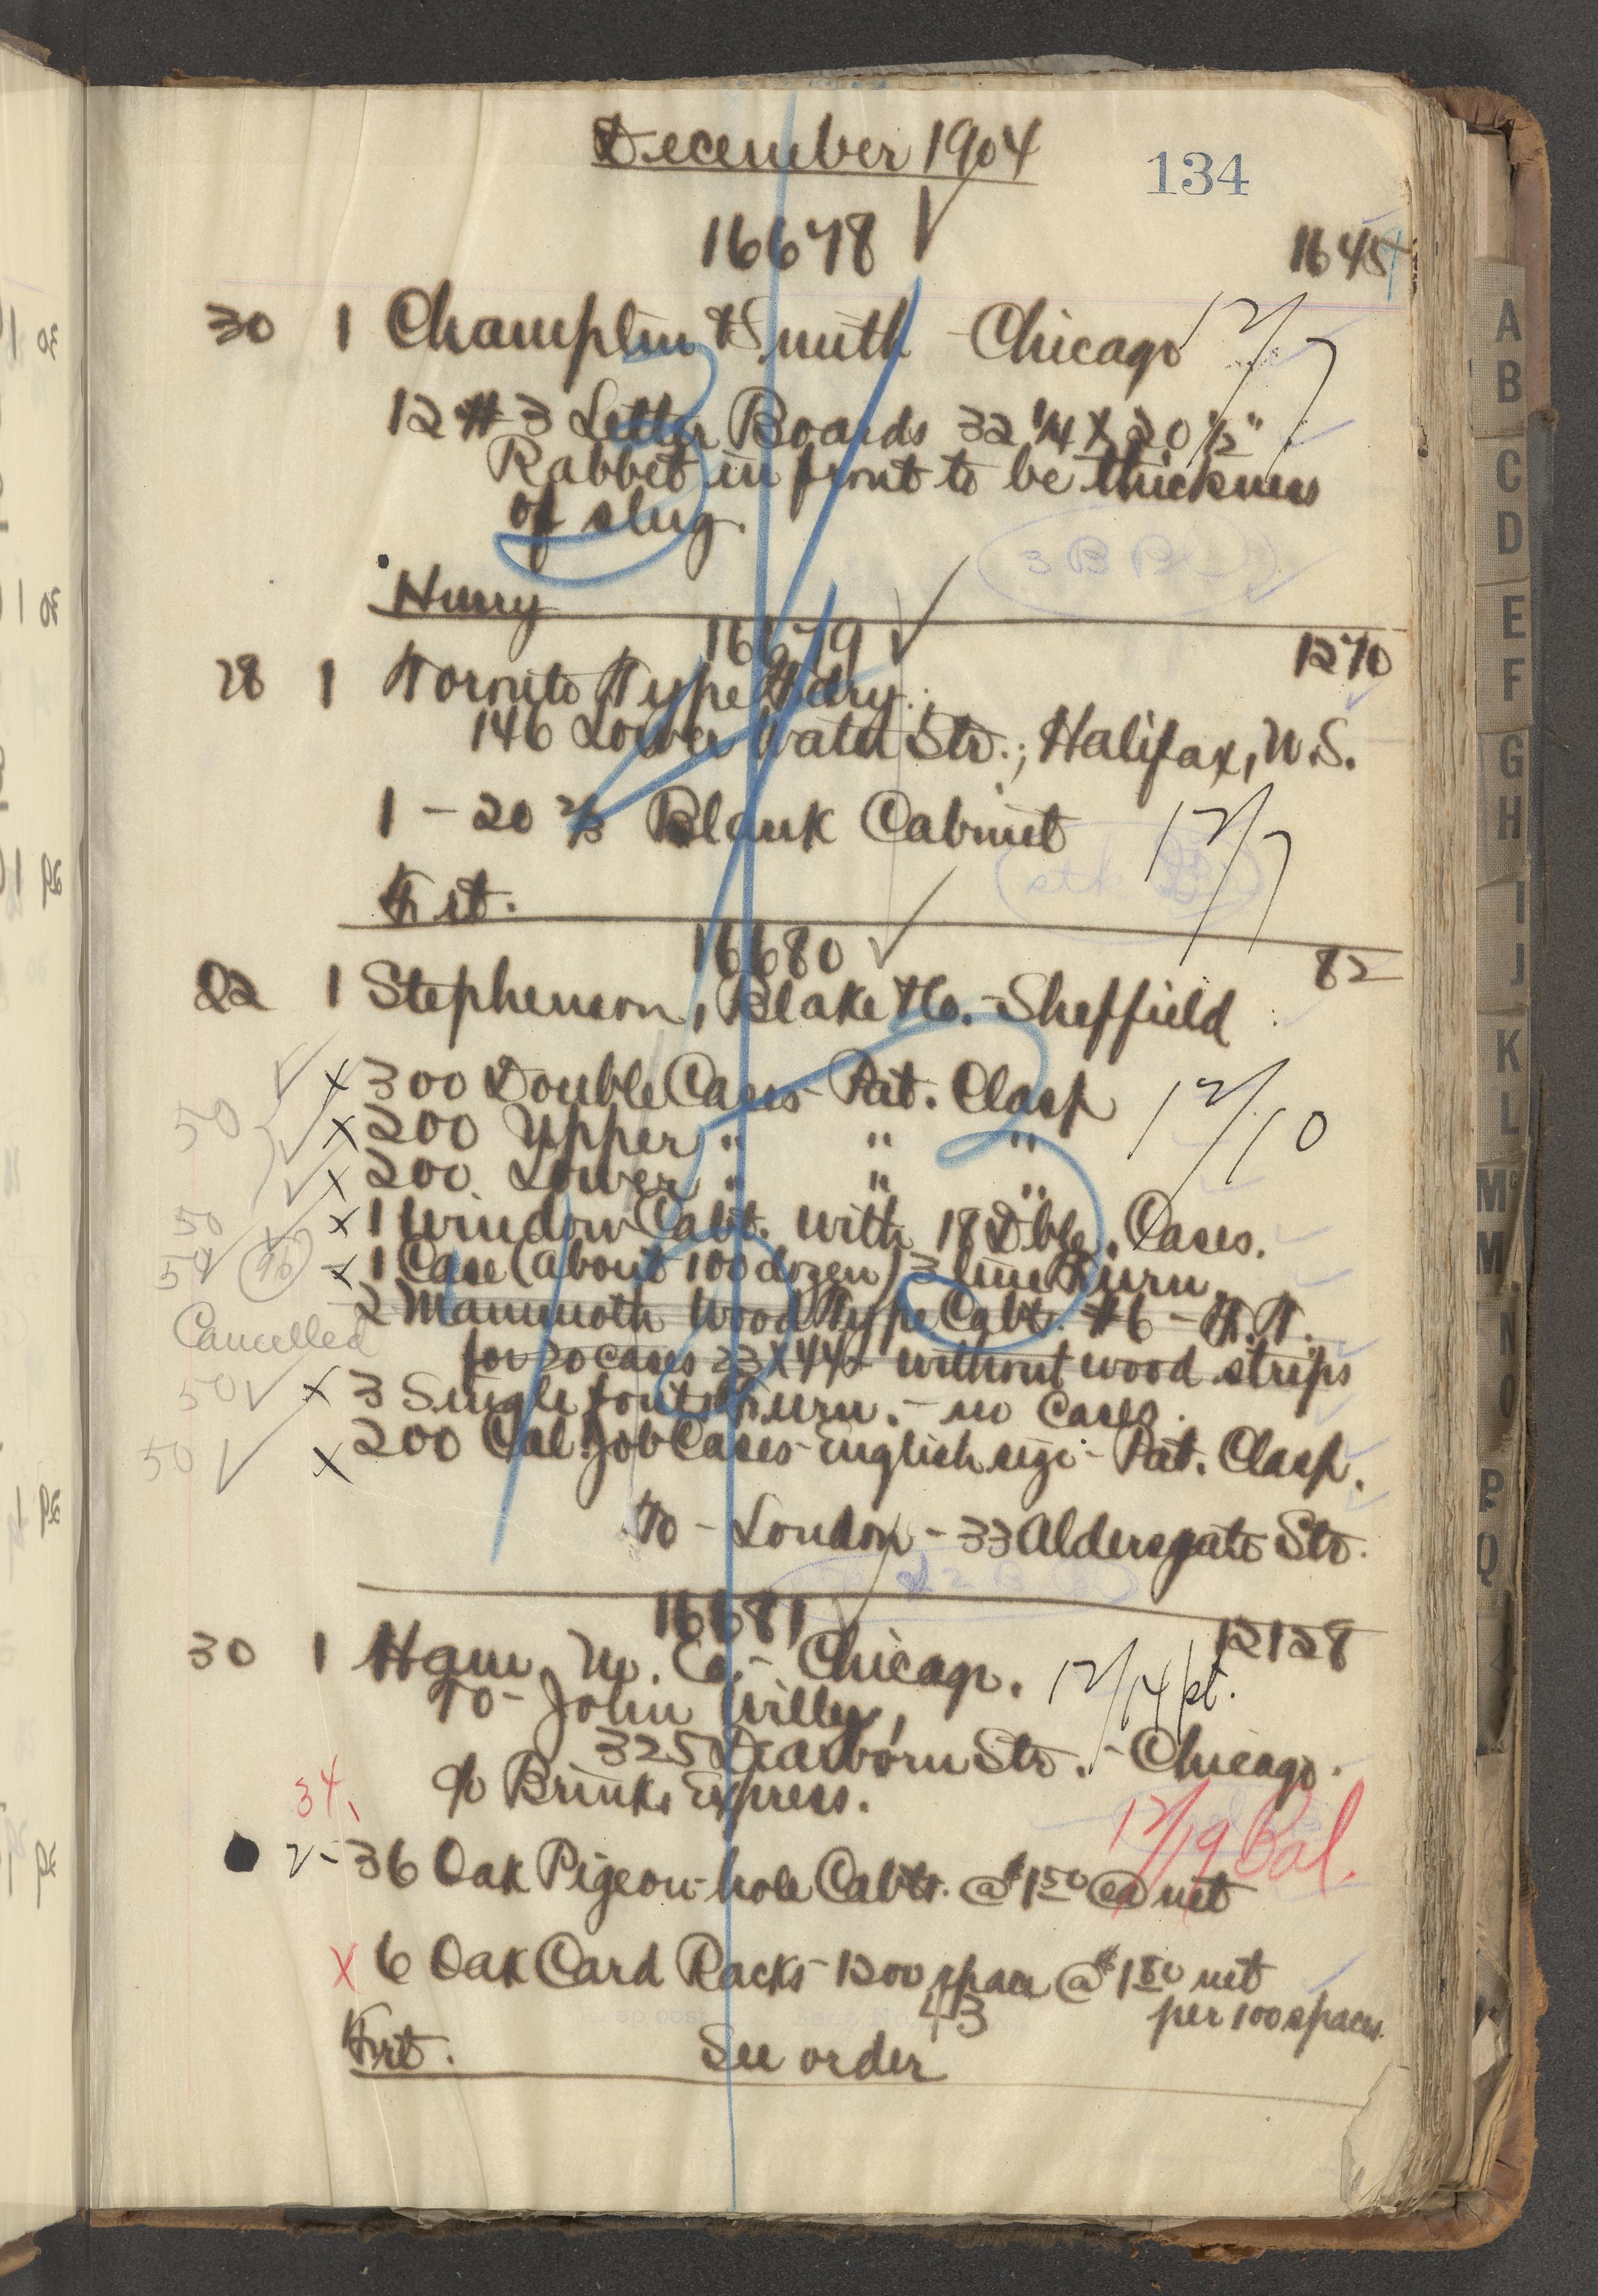 December 1904
134
16678 ✓
1645
30 1 Champlin & Smith - Chicago 12/7
12 #3 Letter Boards 32 1/4 X 20 1/2"
Rabbet in front to be thickness
of slug.
3 B B
Hurry
16679 ✓
1270
28 1 Toronto Type Fdry.
146 Lower Water Str.; Halifax, N.S.
1 - 20 2/3 Blank Cabinet 12/7
stk
Frt.
16680 ✓
82
22 1 Stephenson, Blake & Co. - Sheffield
✓ x 300 Double Cases - Pat. Clasp 12/10
50 ✓ x 200 Upper " " "
✓ x 200 Lower " " "
50 ✓ x 1 Window Cabt. with 18 Dble. Cases.
50 ✓ x 1 Case (about 100 dozen) 3 line Furn.
Cancelled 2 Mammoth Wood Type Cabt. #6 - F.T.
for 20 cases 23 X 44 - without wood strips
50 ✓ x 3 Single font Furn. - no cases.
50 ✓ x 200 Cal. Job Cases - English size - Pat. Clasp.
To - London - 33 Aldersgate Str.
16681 ✓
12128
30 1 Ham. M. Co. - Chicago. 12/14 pt.
To - John Willy,
325 Dearborn Str. - Chicago.
34.
% Brinks Express.
12/19 Bal.
2 - 36 Oak Pigeon-hole Cabts. @ $1.50 ea net
x 6 Oak Card Racks - 1200 space @ $1.80 net
43
per 100 spaces.
Frt. See order
A
B
C
D
E
F
G
H
I
J
K
L
Mc
M
N
O
P
Q